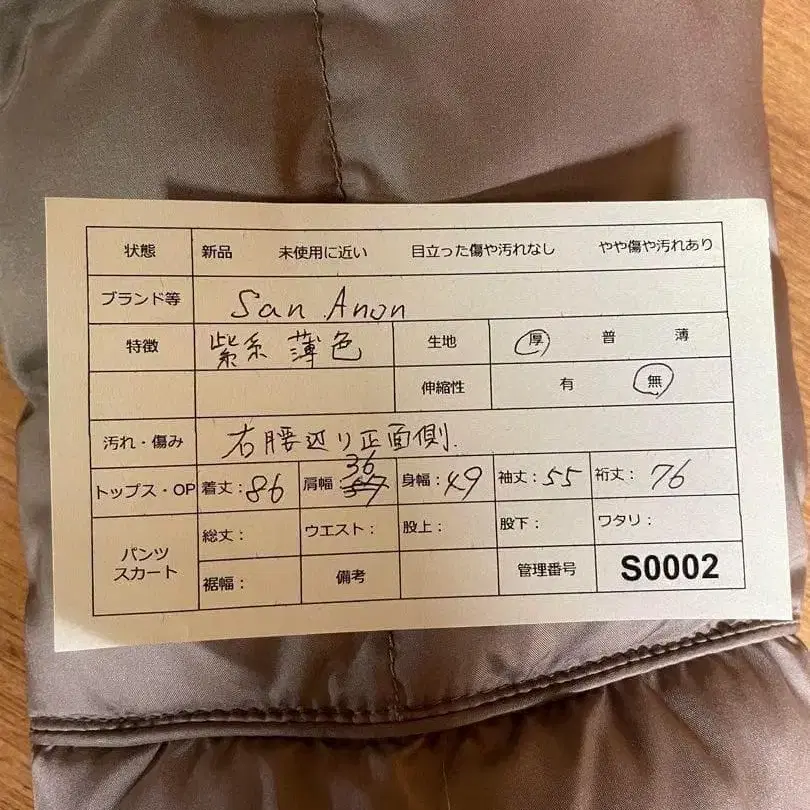 状態 新品 未使用に近い 目立った傷や汚れなし やや傷や汚れあり
ブランド等 San Anon
特徴 紫系 薄色 生地 厚 普 薄
伸縮性 有 無
汚れ・傷み 右腰辺り正面側.
36
トップス・OP 着丈:86 肩幅: 身幅:49 袖丈:55 裄丈:76
パンツ スカート 総丈: ウエスト: 股上: 股下: ワタリ:
裾幅: 備考 管理番号 S0002